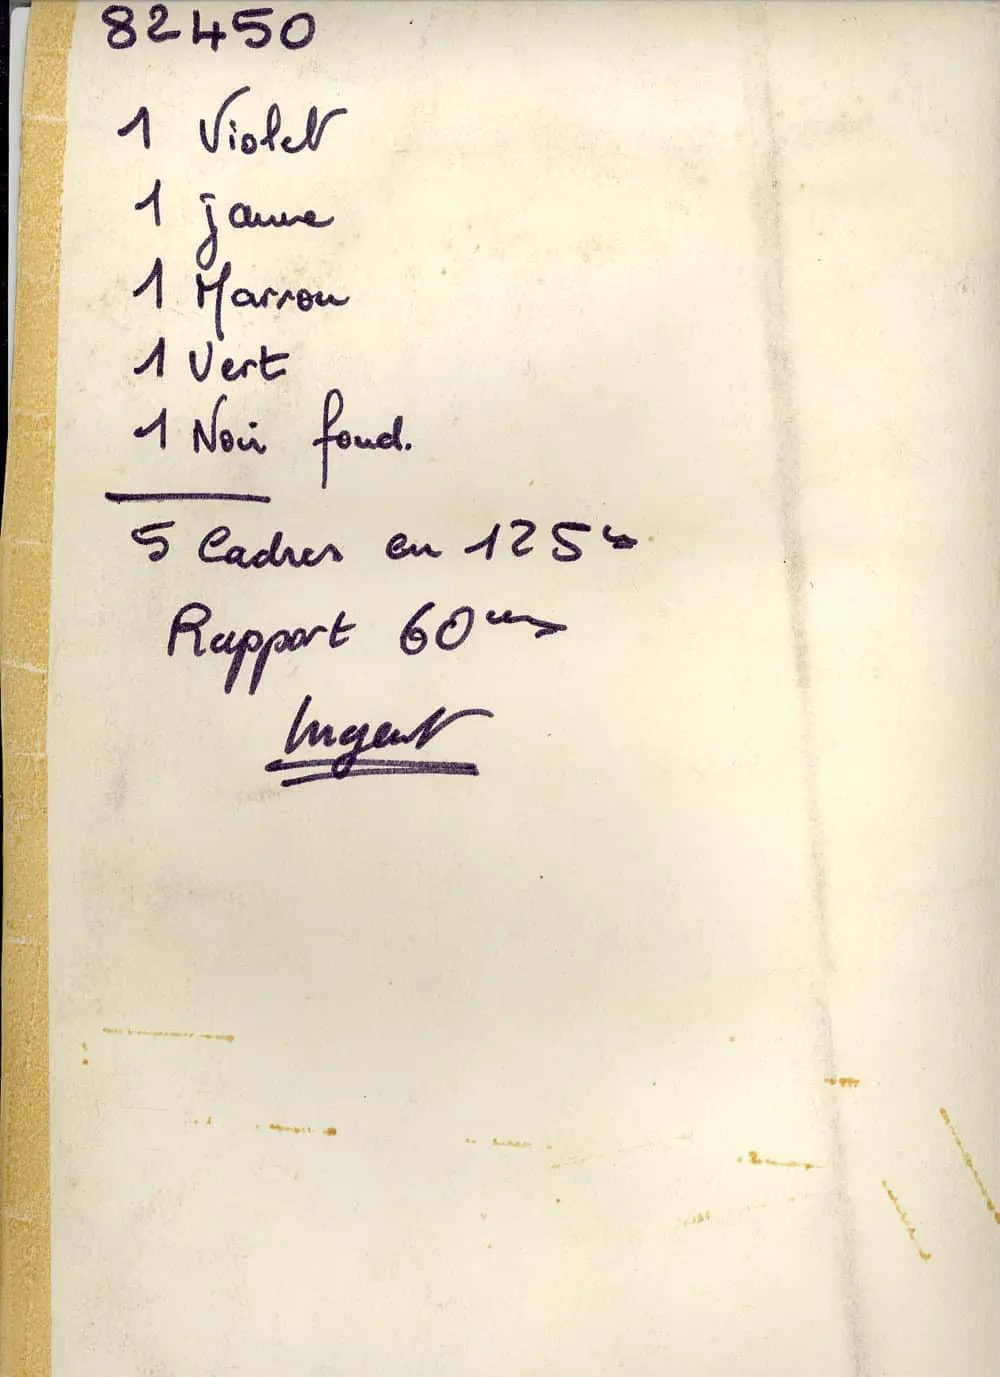 82450
1 Violet
1 jaune
1 Marron
1 Vert
1 Noir fond.
5 Cadres en 125 cm
Rapport 60 cm
Urgent